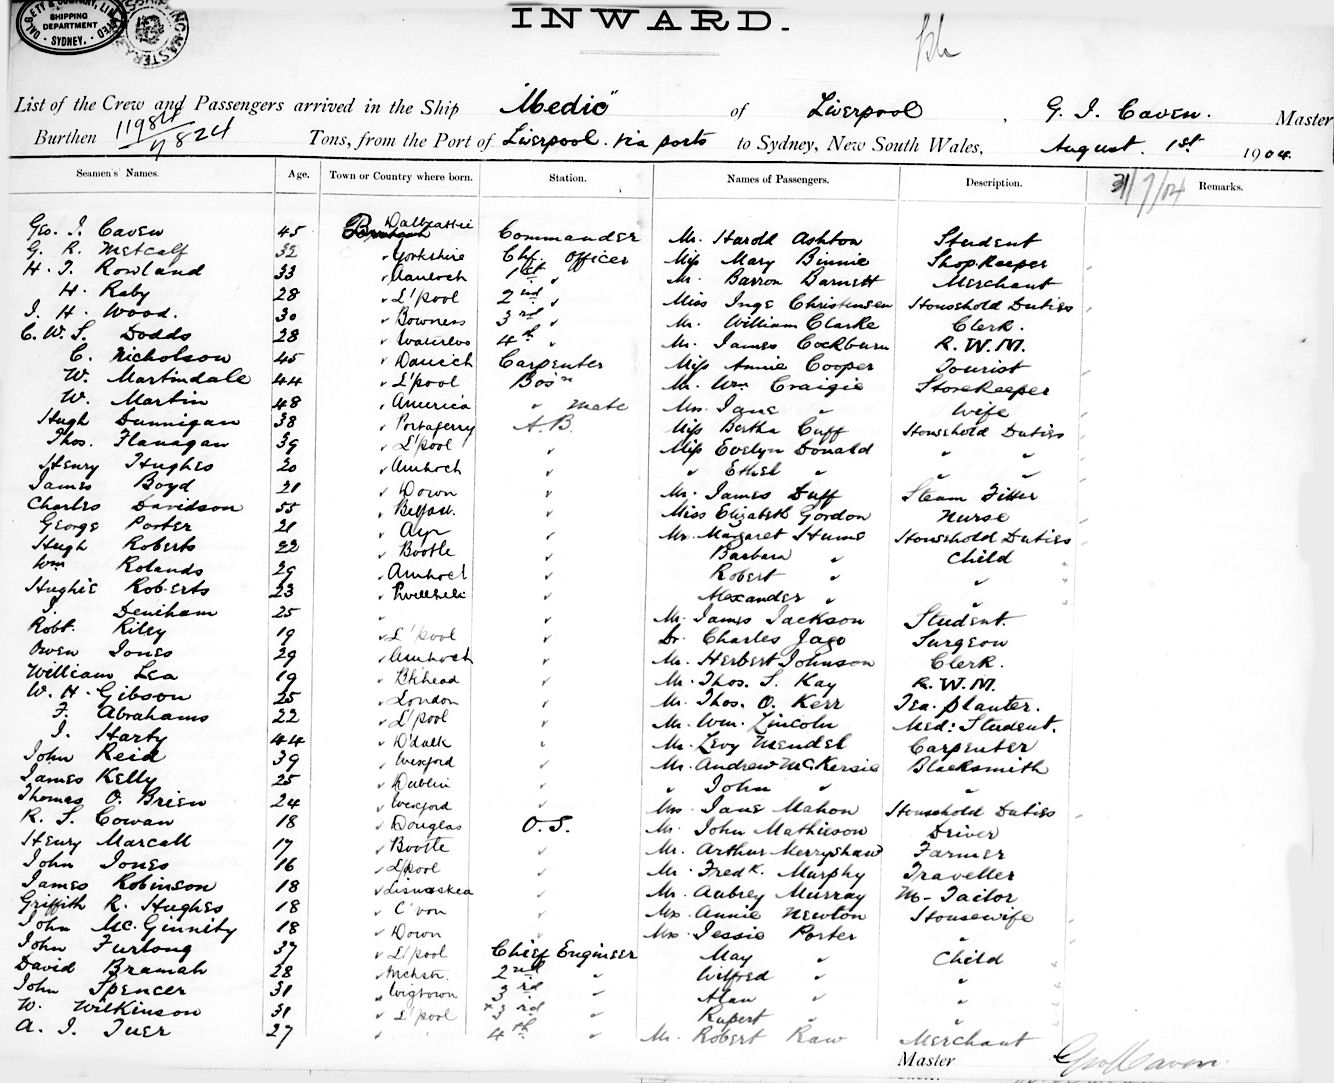 DALGETY & COMPANY, LIMITED
SHIPPING DEPARTMENT
SYDNEY.
INWARD.
List of the Crew and Passengers arrived in the Ship "Medic" of Liverpool, G. J. Caven. Master
Burthen 11984/7824 Tons, from the Port of Liverpool via ports to Sydney, New South Wales, August. 1st 1904.
Seamen's Names. Age. Town or Country where born. Station. Names of Passengers. Description. 31/7/04 Remarks.
Geo. J. Caven 45 Dalbeattie Commander Mr. Harold Ashton Student
G. R. Metcalf 32 " Yorkshire Chf. Officer Miss Mary Binnie Shopkeeper
H. J. Rowland 33 " 1st " Mr. Barron Barnett Merchant
H. Raby 28 " L'pool 2nd " Miss Inge Christensen Household Duties
J. H. Wood. 30 " Bowness 3rd " Mr. William Clarke Clerk.
C. W. S. Dodds 28 " Waterloo 4th " Mr. James Cockburn R. W. M.
C. Nicholson 45 " Carpenter Miss Annie Cooper Tourist
W. Martindale 44 " L'pool Bos'n Mr. Wm Craigie Storekeeper
W. Martin 48 " America " Mate Mrs. Jane " Wife
Hugh Dunnigan 38 " Portaferry A.B. Miss Bertha Cuff Household Duties
Thos. Flanagan 39 " L'pool " Miss Evelyn Donald " "
Henry Hughes 20 " Amlwch " " Ethel " " "
James Boyd 21 " Down " Mr. James Duff Steam Fitter
Charles Davidson 55 " Belfast. " Miss Elizabeth Gordon Nurse
George Porter 21 " Ayr " Mrs. Margaret Hume Household Duties
Hugh Roberts 22 " Bootle " Barbara " Child
Wm Rolands 29 " Amlwch " Robert " "
Hughie Roberts 23 " Pwllheli " Alexander " "
J. Deniham 25 " " Mr. James Jackson Student
Robt. Riley 19 " L'pool " Dr. Charles Jago Surgeon
Owen Jones 29 " Amlwch " Mr. Herbert Johnson Clerk.
William Lea 19 " Bk'head " Mr. Thos. S. Kay R. W. M.
W. H. Gibson 25 " London " Mr. Thos. O. Kerr Tea planter.
F. Abrahams 22 " L'pool " Mr. Wm. Lincoln Med: Student.
J. Harty 44 " D'dalk " Mr. Levy Mendel Carpenter
John Reid 39 " Wexford " Mr. Andrew McKersie Blacksmith
James Kelly 25 " Dublin " " John " "
Thomas O. Brien 24 " Wexford " Mrs Jane Mahon Household Duties
R. S. Cowan 18 " Douglas O.S. Mr. John Mathieson Driver
Henry Marcall 17 " Bootle " Mr. Arthur Merryshaw Farmer
John Jones 16 " L'pool " Mr. Fredk. Murphy Traveller
James Robinson 18 " Lisnaskea " Mr. Aubrey Murray M-Factor
Griffith R. Hughes 18 " C'von " Mrs. Annie Newton Housewife
John McGinnity 18 " Down " Mrs. Jessie Porter "
John Furlong 37 " L'pool Chief Engineer May " Child
David Bramah 28 " Mchstr. 2nd " Wilfred " "
John Spencer 31 " Wigtown 3rd " Alan " "
W. Wilkinson 31 " L'pool x3rd " Rupert " "
A. J. Tuer 27 " " 4th " Mr. Robert Raw Merchant
Master Geo J Caven.